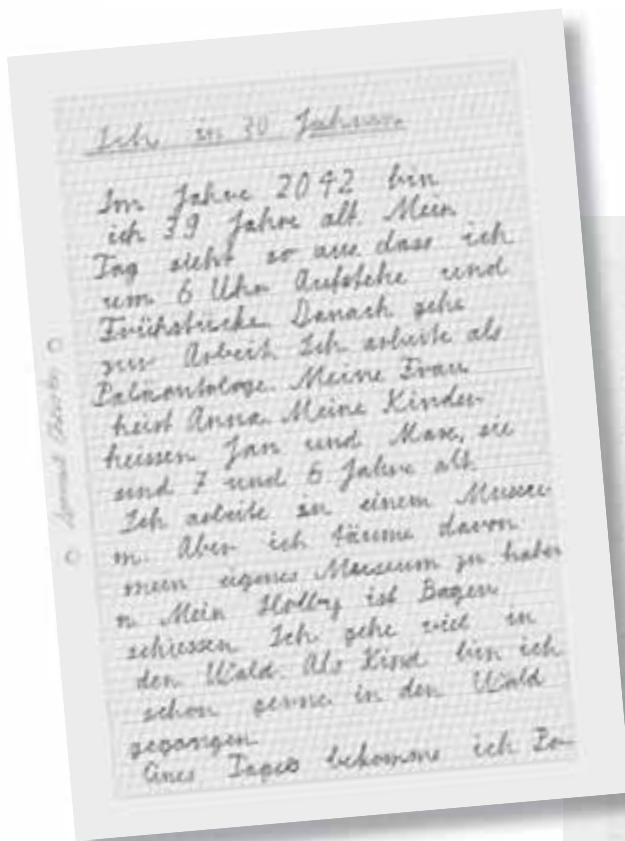 Ich in 30 Jahren
Im Jahre 2042 bin
ich 39 Jahre alt. Mein
Tag sieht so aus dass ich
um 6 Uhr Aufstehe und
Frühstücke Danach gehe
zur Arbeit Ich arbeite als
Paläontologe. Meine Frau
heist Anna. Meine Kinder
heissen Jan und Max, sie
sind 7 und 6 Jahre alt.
Ich arbeite in einem Museu
m. Aber ich täume davon
mein eigenes Museum zu habe
n Mein Hobby ist Bogen
schiessen Ich gehe viel in
den Wald. Als Kind bin ich
schon gerne in den Wald
gegangen
Eines Tages bekomme ich Po-